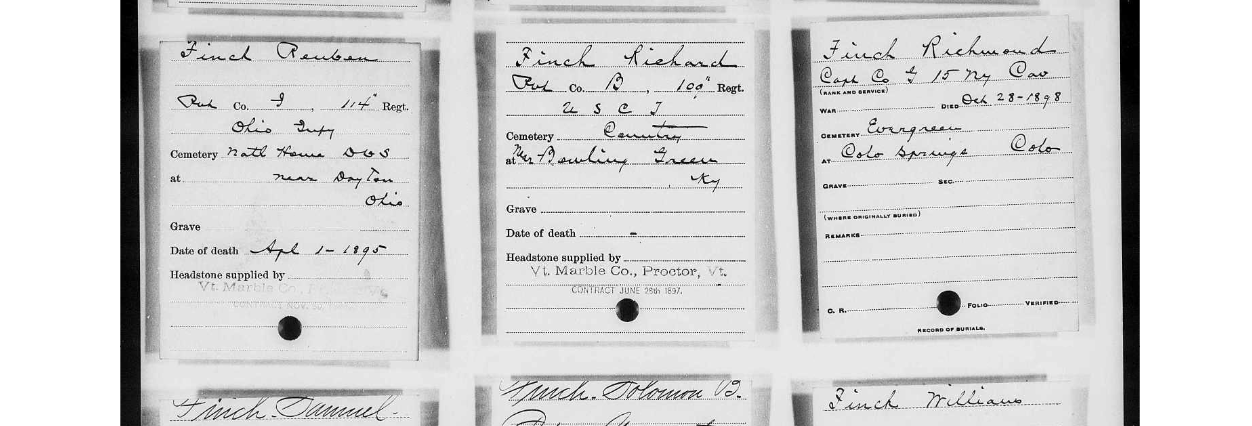 Finch Reuben
Pvt Co. I, 114" Regt.
Ohio Infy
Cemetery Natl Home DVS
at near Dayton
Ohio
Grave
Date of death Apl 1-1895
Headstone supplied by
Vt. Marble Co.,
Finch Richard
Pvt Co. B, 100" Regt.
U S C T
Cemetery Country
at Nr Bowling Green
Ky
Grave
Date of death -
Headstone supplied by
Vt. Marble Co., Proctor, Vt.
CONTRACT JUNE 28th 1897.
Finch Richmond
Capt Co G 15 NY Cav
(RANK AND SERVICE)
WAR DIED Oct 28-1898
CEMETERY Evergreen
AT Colo Springs Colo
GRAVE SEC.
(WHERE ORIGINALLY BURIED)
REMARKS
C. R. FOLIO VERIFIED
RECORD OF BURIALS.
Finch. Samuel.
Finch. Solomon B.
Finch William